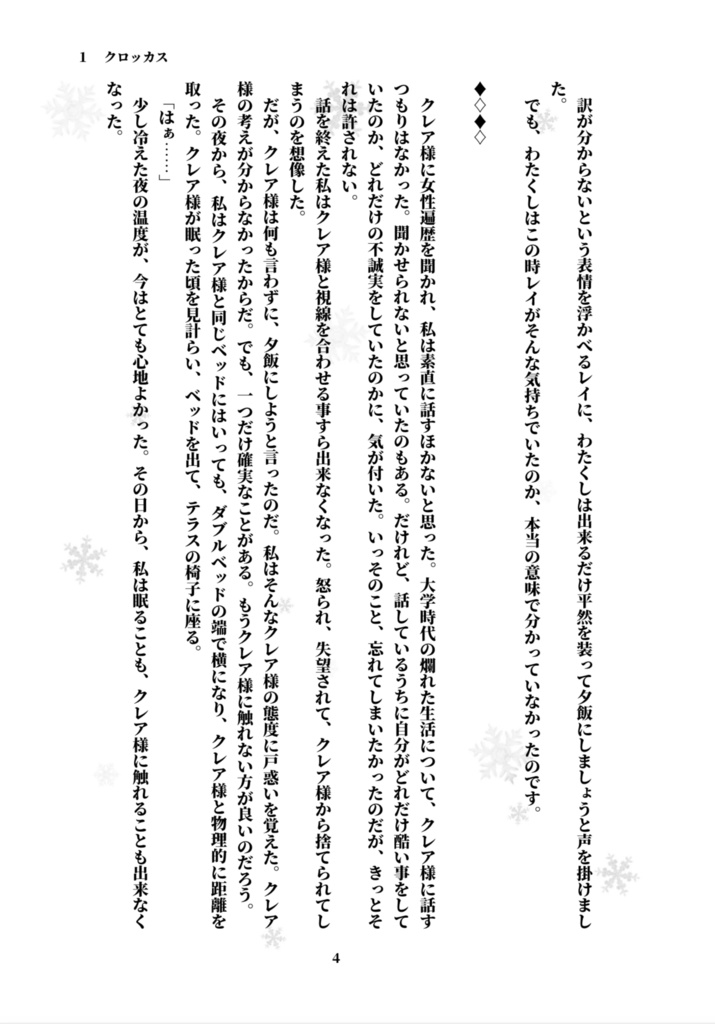 1 クロッカス
訳が分からないという表情を浮かべるレイに、わたくしは出来るだけ平然を装って夕飯にしましょうと声を掛けまし
た。
でも、わたくしはこの時レイがそんな気持ちでいたのか、本当の意味で分かっていなかったのです。
◆◇◆◇
クレア様に女性遍歴を聞かれ、私は素直に話すほかないと思った。大学時代の爛れた生活について、クレア様に話す
つもりはなかった。聞かせられないと思っていたのもある。だけれど、話しているうちに自分がどれだけ酷い事をして
いたのか、どれだけの不誠実をしていたのかに、気が付いた。いっそのこと、忘れてしまいたかったのだが、きっとそ
れは許されない。
話を終えた私はクレア様と視線を合わせる事すら出来なくなった。怒られ、失望されて、クレア様から捨てられてし
まうのを想像した。
だが、クレア様は何も言わずに、夕飯にしようと言ったのだ。私はそんなクレア様の態度に戸惑いを覚えた。クレア
様の考えが分からなかったからだ。でも、一つだけ確実なことがある。もうクレア様に触れない方が良いのだろう。
その夜から、私はクレア様と同じベッドにはいっても、ダブルベッドの端で横になり、クレア様と物理的に距離を
取った。クレア様が眠った頃を見計らい、ベッドを出て、テラスの椅子に座る。
「はぁ……」
少し冷えた夜の温度が、今はとても心地よかった。その日から、私は眠ることも、クレア様に触れることも出来なく
なった。
4